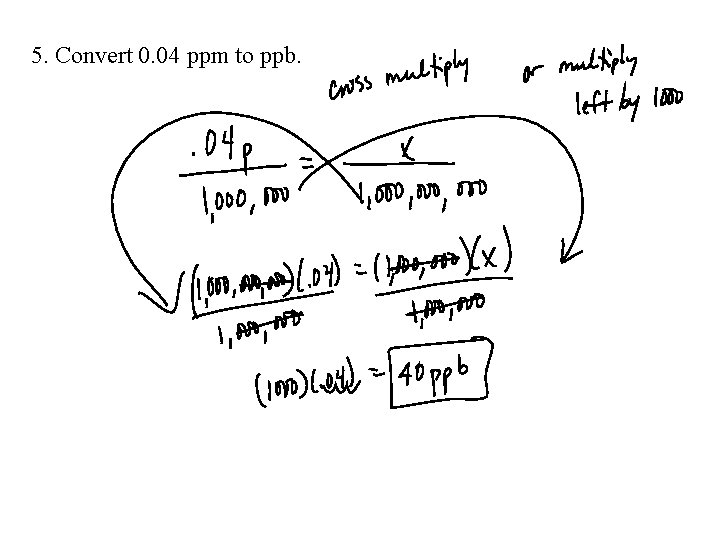 5. Convert 0.04 ppm to ppb.
cross multiply
or multiply
left by 1000
.04p = x
1,000,000 1,000,000,000
(1,000,000,000)(.04) = (1,000,000)(x)
1,000,000 1,000,000
(1000)(.04) = 40 ppb